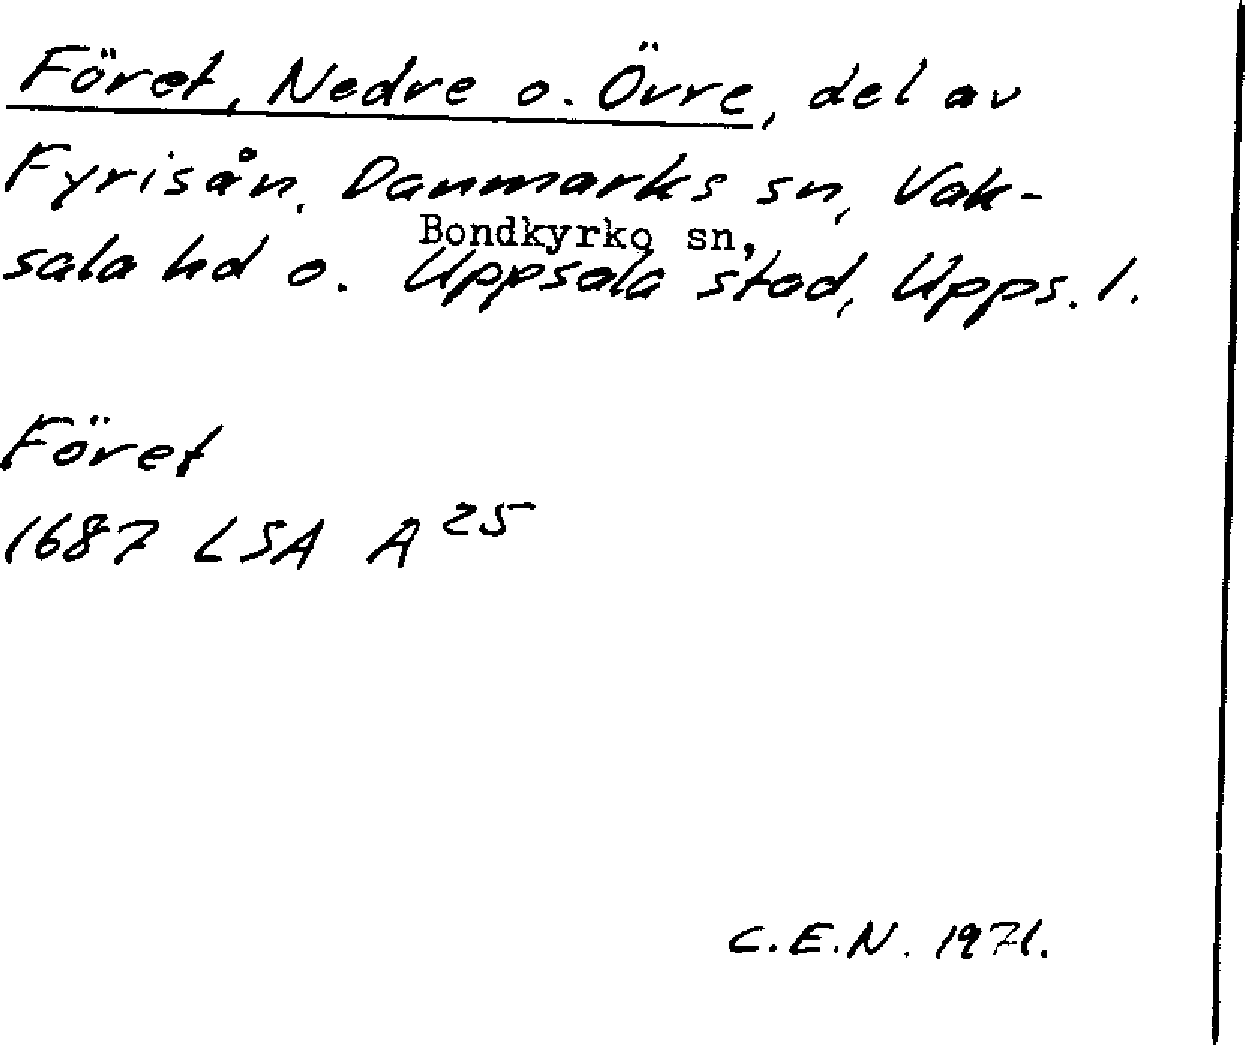 Föret, Nedre o. Övre, del av
Fyrisån, Danmarks sn, Vak-
Bondkyrko sn,
sala hd o. Uppsala stad, Upps. l.
Föret
1687 LSA A 25
C.E.N. 1971.